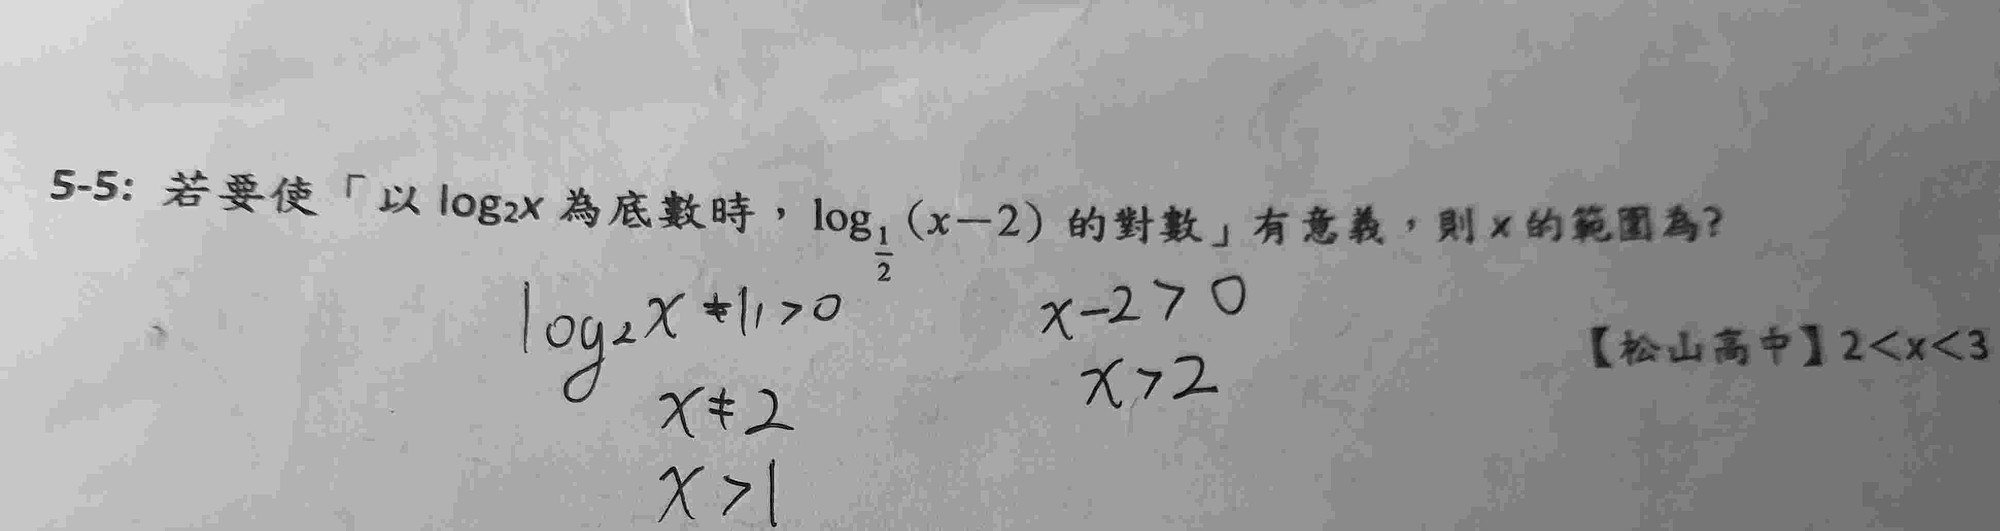 5-5: 若要使「以 log₂x 為底數時，log_{1/2}（x－2）的對數」有意義，則 x 的範圍為?
log₂x ≠ 1, > 0
x-2 > 0
【松山高中】2<x<3
x > 2
x ≠ 2
x > 1